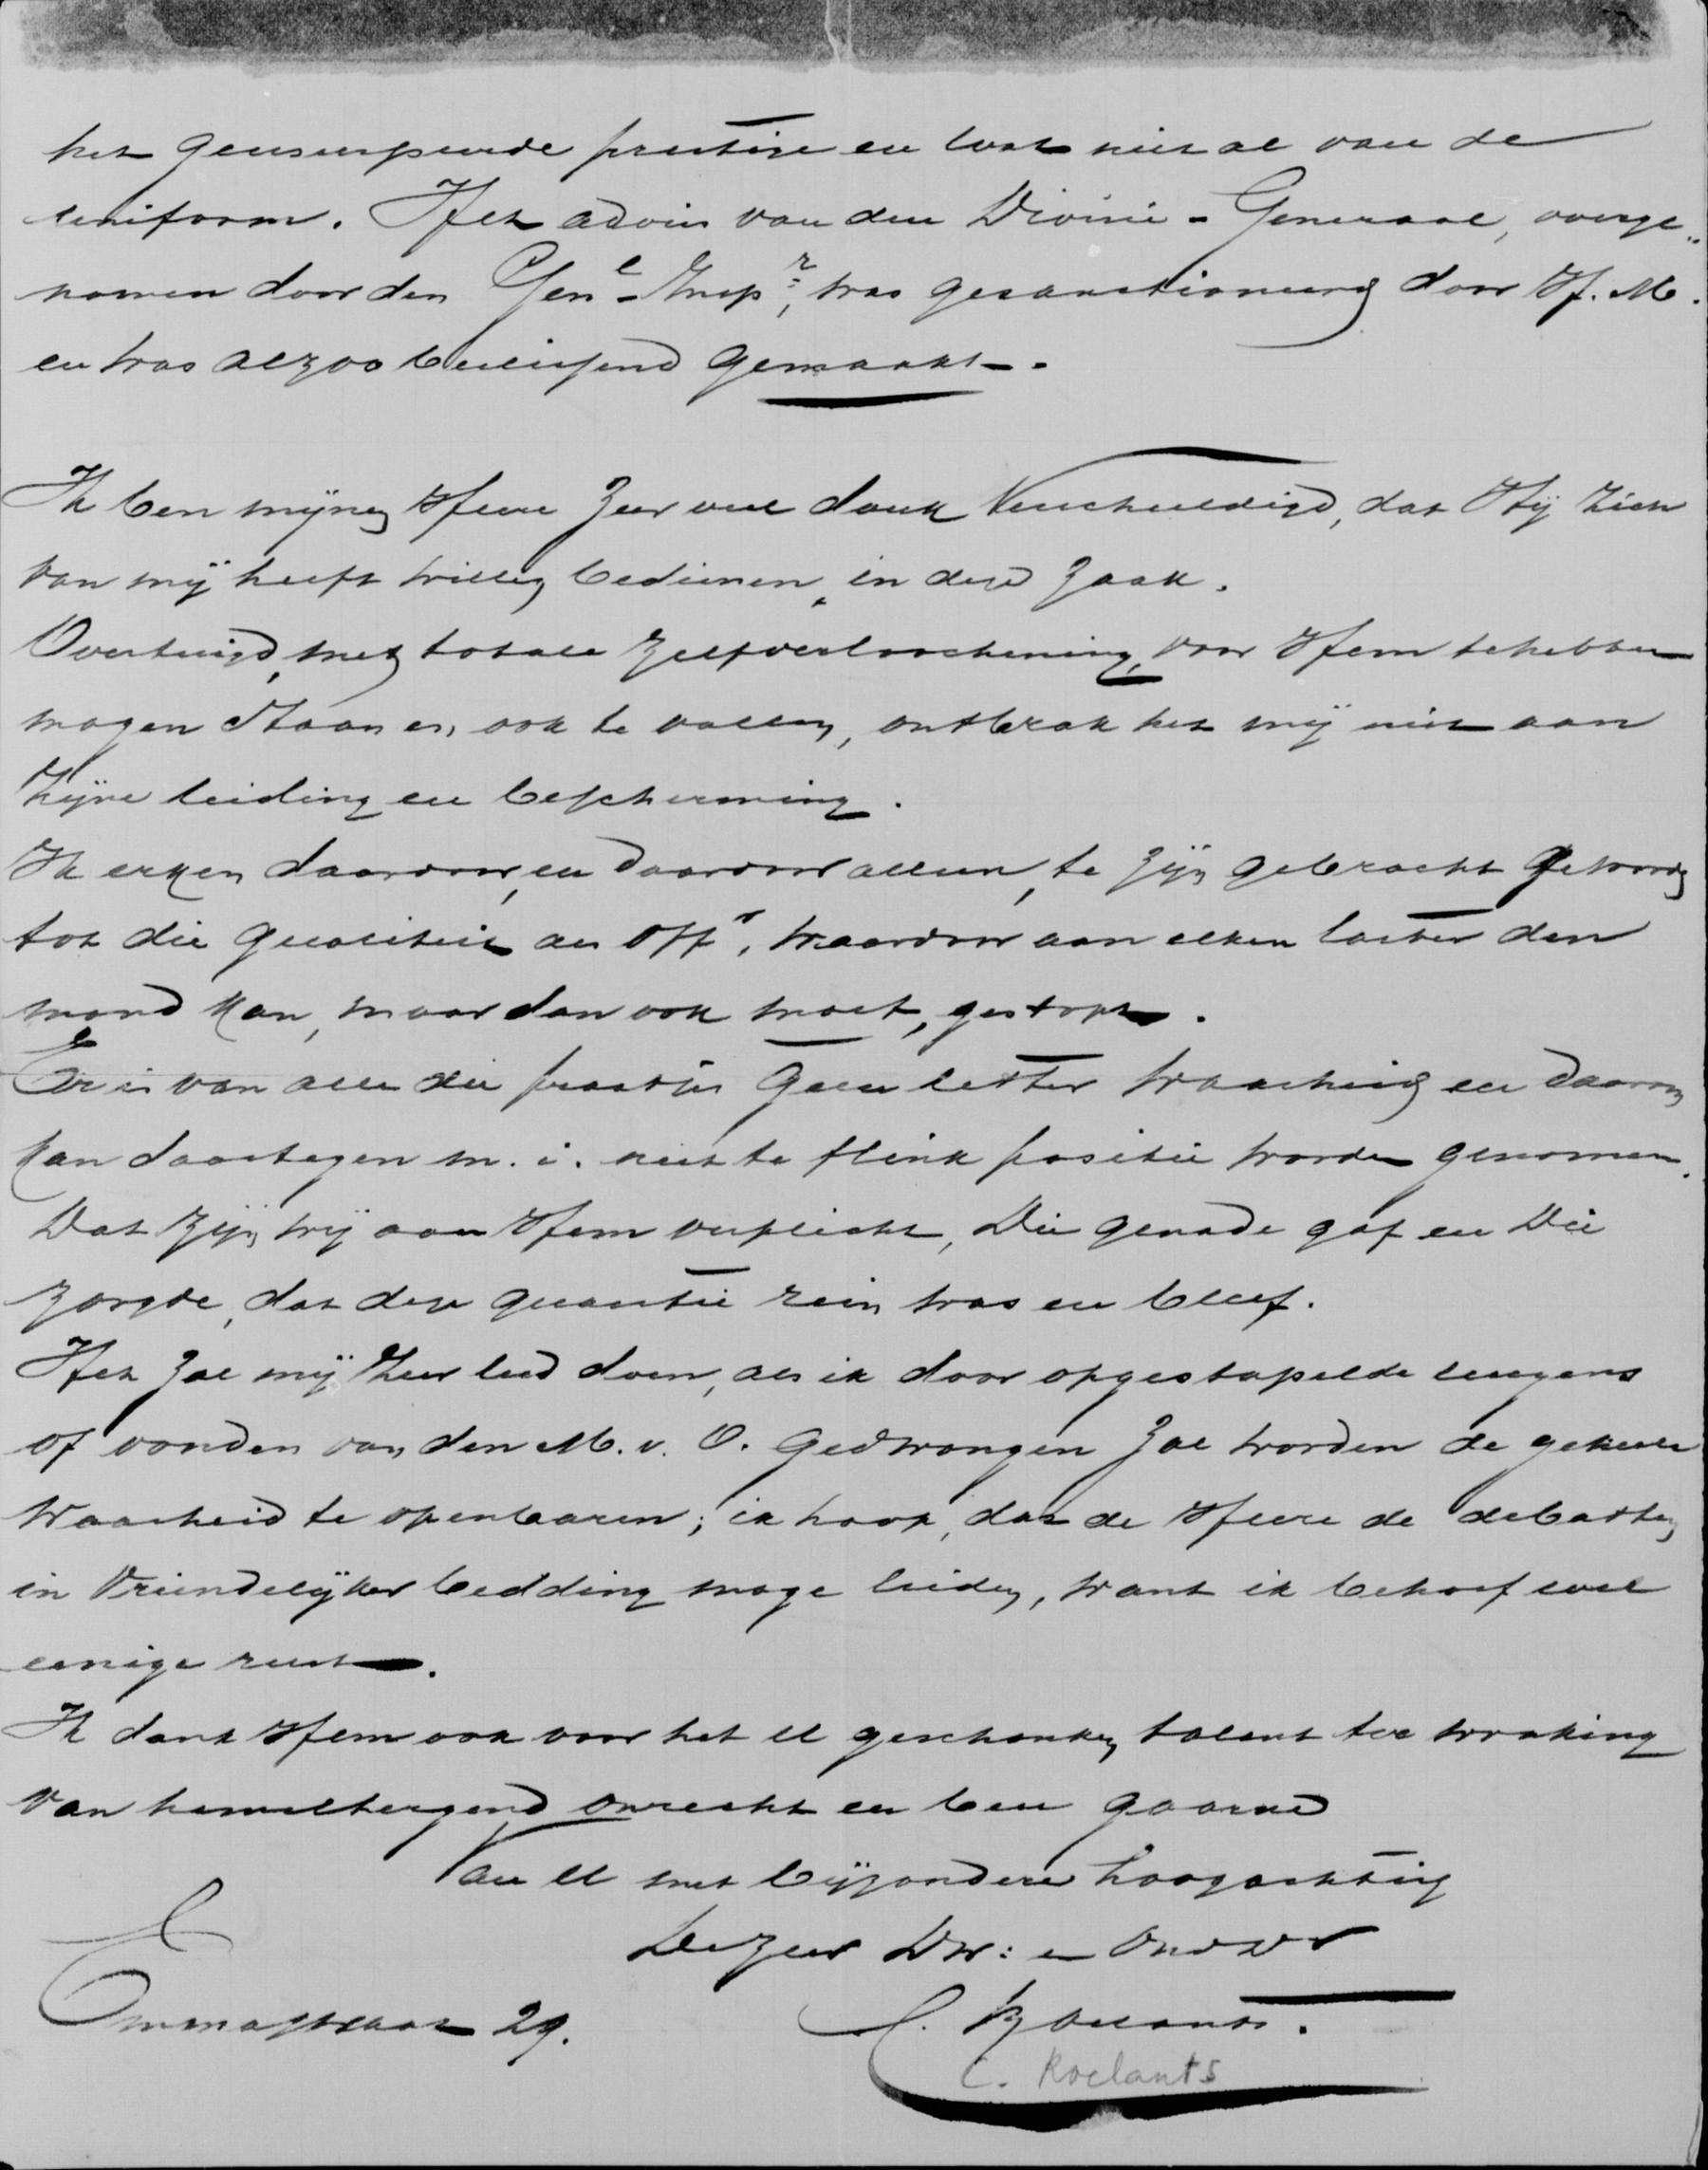 het geusurpeerde prestige en laat niet al van de
uniform. Het advies van den Divisie-Generaal, overge„
nomen door den Genl-Inspr, was gesanctioneerd door H. M.
en was alzoo beleefend gemaakt.
Ik ben mijnen Heere zeer veel dank verschuldigd, dat Hij zich
van mij heeft willen bedienen, in deze zaak.
Overtuigd, met totale zelfverloochening, voor Hem te hebben
mogen staan en, ook te vallen, ontbrak het mij niet aan
Zijne leiding en bescherming.
Ik erken daardoor, en daardoor alleen, te zijn gebracht geworden
tot die qualiteit als Offr, waardoor aan elken laster den
mond kan, maar dan ook moet, gestopt.
Er is van alle die praatjes geen letter waarheid en daarom
kan daartegen m. i. niet te flink positie worden genomen.
Dat zijn wij aan Hem verplicht, Die genade gaf en Die
zorgde, dat deze quaestie rein was en bleef.
Het zal mij zeer leed doen, als ik door opgestapelde leugens
of vonden van den M. v. O. gedwongen zal worden de geheele
waarheid te openbaren; ik hoop, dat de Heere de debatten
in vriendelijker bedding moge leiden, want ik behoef wel
eenige rust.
Ik dank Hem ook voor het U geschonken talent ter wraking
van hemeltergend onrecht en ben gaarne
Van U met bijzondere hoogachting
De zeer Dw: en Onddr
Emmastraat 29.
C. Roelants.
C. Roelants